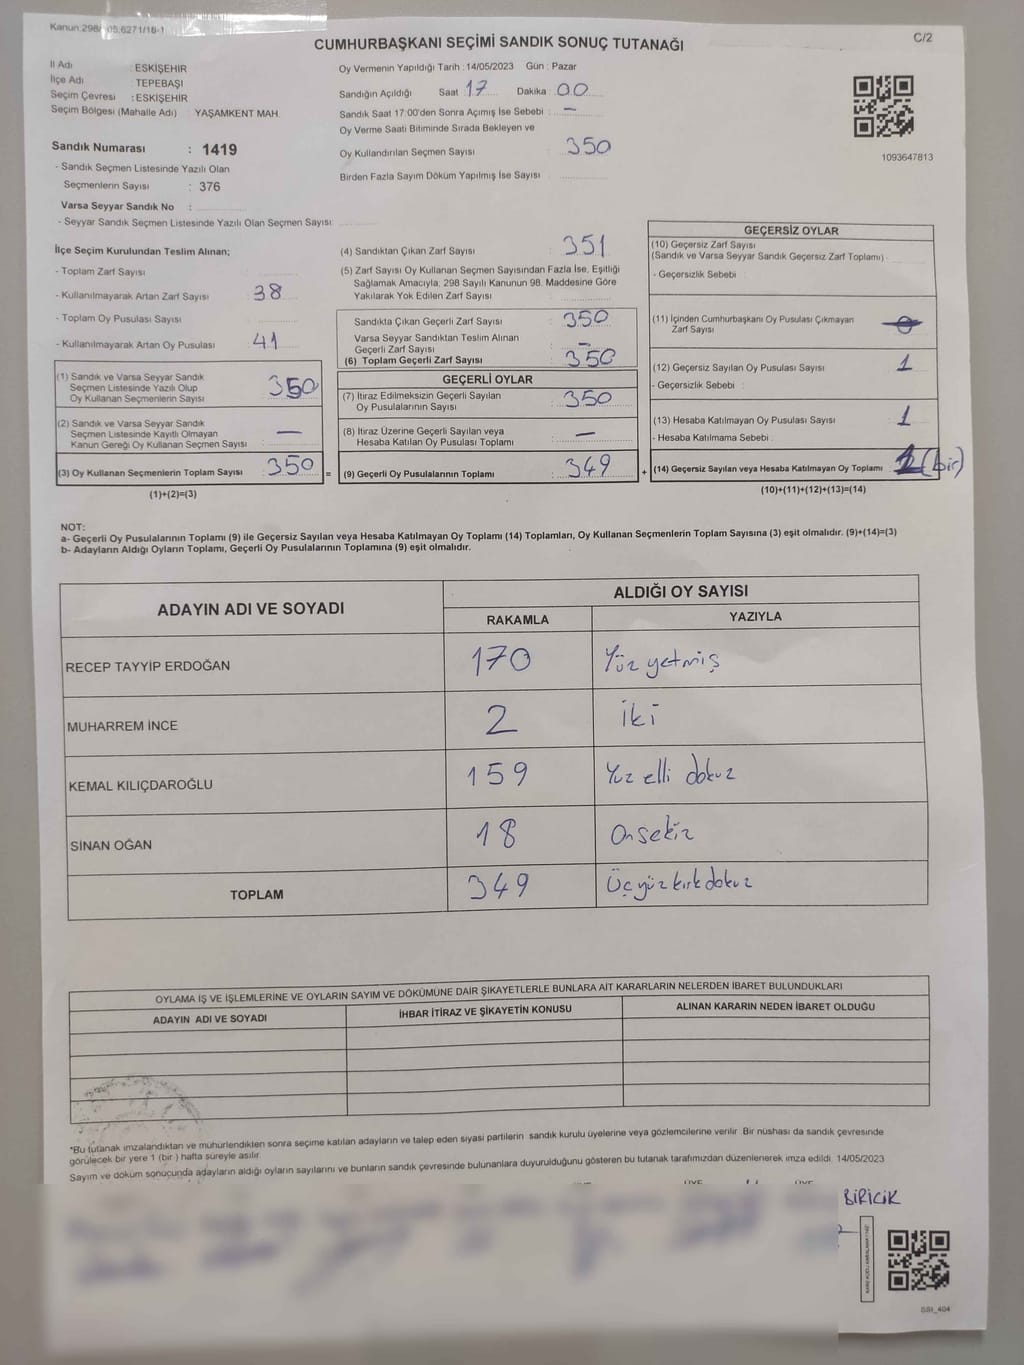 Kanun:298/ 05:6271/16-1
CUMHURBAŞKANI SEÇİMİ SANDIK SONUÇ TUTANAĞI
C/2
İl Adı : ESKİŞEHİR
İlçe Adı : TEPEBAŞI
Seçim Çevresi : ESKİŞEHİR
Seçim Bölgesi (Mahalle Adı) : YAŞAMKENT MAH.
Sandık Numarası : 1419
- Sandık Seçmen Listesinde Yazılı Olan
Seçmenlerin Sayısı : 376
Varsa Seyyar Sandık No :
- Seyyar Sandık Seçmen Listesinde Yazılı Olan Seçmen Sayısı:
Oy Vermenin Yapıldığı Tarih : 14/05/2023 Gün : Pazar
Sandığın Açıldığı Saat : 17 Dakika : 00
Sandık Saat 17:00'den Sonra Açımış İse Sebebi : —
Oy Verme Saati Bitiminde Sırada Bekleyen ve
Oy Kullandırılan Seçmen Sayısı : 350
Birden Fazla Sayım Döküm Yapılmış İse Sayısı :
1093647813
İlçe Seçim Kurulundan Teslim Alınan;
- Toplam Zarf Sayısı :
- Kullanılmayarak Artan Zarf Sayısı : 38
- Toplam Oy Pusulası Sayısı :
- Kullanılmayarak Artan Oy Pusulası : 41
(1) Sandık ve Varsa Seyyar Sandık
Seçmen Listesinde Yazılı Olup
Oy Kullanan Seçmenlerin Sayısı : 350
(2) Sandık ve Varsa Seyyar Sandık
Seçmen Listesinde Kayıtlı Olmayan
Kanun Gereği Oy Kullanan Seçmen Sayısı : —
(3) Oy Kullanan Seçmenlerin Toplam Sayısı : 350 =
(1)+(2)=(3)
(4) Sandıktan Çıkan Zarf Sayısı : 351
(5) Zarf Sayısı Oy Kullanan Seçmen Sayısından Fazla İse, Eşitliği
Sağlamak Amacıyla; 298 Sayılı Kanunun 98. Maddesine Göre
Yakılarak Yok Edilen Zarf Sayısı :
Sandıkta Çıkan Geçerli Zarf Sayısı : 350
Varsa Seyyar Sandıktan Teslim Alınan
Geçerli Zarf Sayısı : —
(6) Toplam Geçerli Zarf Sayısı : 350
GEÇERLİ OYLAR
(7) İtiraz Edilmeksizin Geçerli Sayılan
Oy Pusulalarının Sayısı : 350
(8) İtiraz Üzerine Geçerli Sayılan veya
Hesaba Katılan Oy Pusulası Toplamı : —
(9) Geçerli Oy Pusulalarının Toplamı : 349 +
GEÇERSİZ OYLAR
(10) Geçersiz Zarf Sayısı
(Sandık ve Varsa Seyyar Sandık Geçersiz Zarf Toplamı) :
- Geçersizlik Sebebi :
(11) İçinden Cumhurbaşkanı Oy Pusulası Çıkmayan
Zarf Sayısı : 0
(12) Geçersiz Sayılan Oy Pusulası Sayısı : 1
- Geçersizlik Sebebi :
(13) Hesaba Katılmayan Oy Pusulası Sayısı : 1
- Hesaba Katılmama Sebebi :
(14) Geçersiz Sayılan veya Hesaba Katılmayan Oy Toplamı : 1 (bir)
(10)+(11)+(12)+(13)=(14)
NOT:
a- Geçerli Oy Pusulalarının Toplamı (9) ile Geçersiz Sayılan veya Hesaba Katılmayan Oy Toplamı (14) Toplamları, Oy Kullanan Seçmenlerin Toplam Sayısına (3) eşit olmalıdır. (9)+(14)=(3)
b- Adayların Aldığı Oyların Toplamı, Geçerli Oy Pusulalarının Toplamına (9) eşit olmalıdır.
ADAYIN ADI VE SOYADI ALDIĞI OY SAYISI
RAKAMLA YAZIYLA
RECEP TAYYİP ERDOĞAN 170 Yüz yetmiş
MUHARREM İNCE 2 iki
KEMAL KILIÇDAROĞLU 159 Yüz elli dokuz
SİNAN OĞAN 18 Onsekiz
TOPLAM 349 Üçyüz kırk dokuz
OYLAMA İŞ VE İŞLEMLERİNE VE OYLARIN SAYIM VE DÖKÜMÜNE DAİR ŞİKAYETLERLE BUNLARA AİT KARARLARIN NELERDEN İBARET BULUNDUKLARI
ADAYIN ADI VE SOYADI İHBAR İTİRAZ VE ŞİKAYETİN KONUSU ALINAN KARARIN NEDEN İBARET OLDUĞU
*Bu tutanak imzalandıktan ve mühürlendikten sonra seçime katılan adayların ve talep eden siyasi partilerin sandık kurulu üyelerine veya gözlemcilerine verilir. Bir nüshası da sandık çevresinde
görülecek bir yere 1 (bir ) hafta süreyle asılır.
Sayım ve döküm sonucunda adayların aldığı oyların sayılarını ve bunların sandık çevresinde bulunanlara duyurulduğunu gösteren bu tutanak tarafımızdan düzenlenerek imza edildi. 14/05/2023
ÜYE ÜYE
BİRİCİK
SSI_404